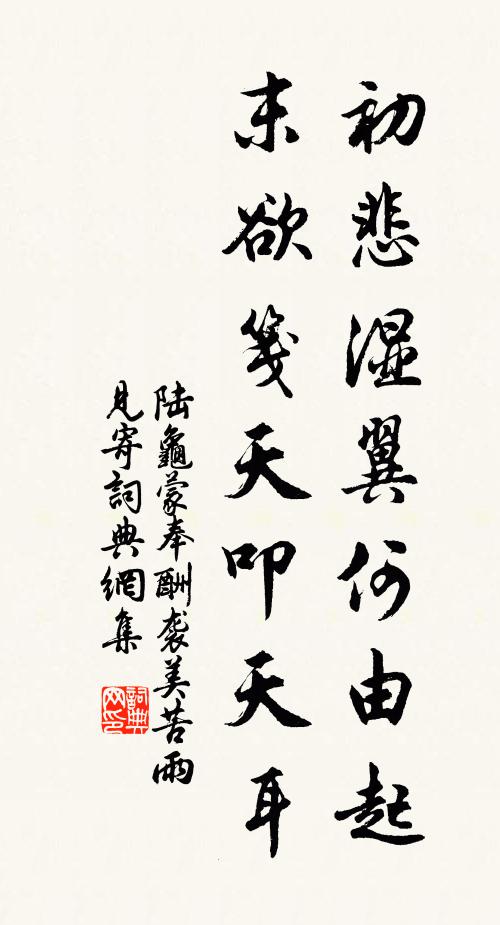 初悲濕翼何由起
末欲箋天叩天耳
陸龜蒙奉酬襲美苦雨
見寄詞典網集
詞典網印